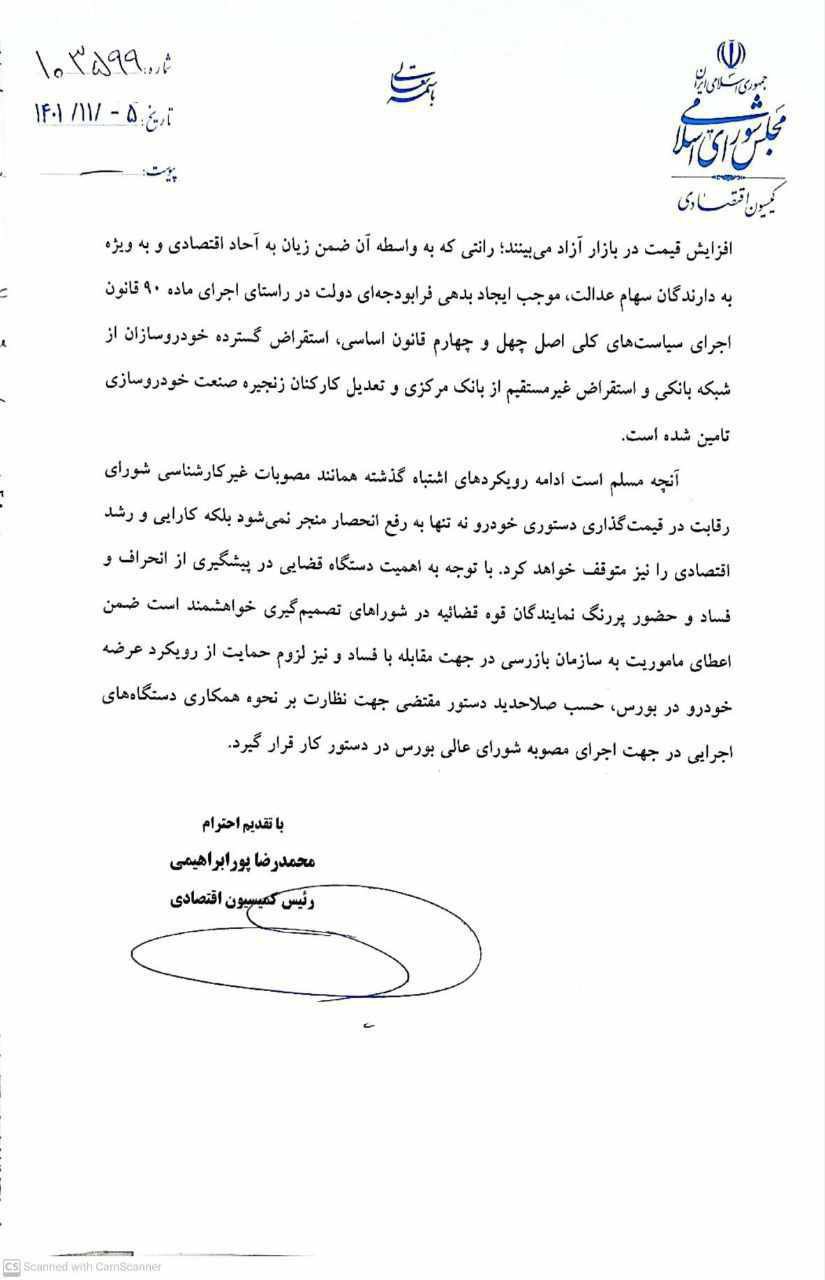 جمهوری اسلامی ایران
مجلس شورای اسلامی
کمیسیون اقتصادی
باسمه تعالی
شماره: ۱۰۳۵۹۹
تاریخ: ۱۴۰۱/۱۱/-۵
پیوست:
افزایش قیمت در بازار آزاد می‌بینند؛ رانتی که به واسطه آن ضمن زیان به آحاد اقتصادی و به ویژه
به دارندگان سهام عدالت، موجب ایجاد بدهی فرابودجه‌ای دولت در راستای اجرای ماده ۹۰ قانون
اجرای سیاست‌های کلی اصل چهل و چهارم قانون اساسی، استقراض گسترده خودروسازان از
شبکه بانکی و استقراض غیرمستقیم از بانک مرکزی و تعدیل کارکنان زنجیره صنعت خودروسازی
تامین شده است.
آنچه مسلم است ادامه رویکردهای اشتباه گذشته همانند مصوبات غیرکارشناسی شورای
رقابت در قیمت‌گذاری دستوری خودرو نه تنها به رفع انحصار منجر نمی‌شود بلکه کارایی و رشد
اقتصادی را نیز متوقف خواهد کرد. با توجه به اهمیت دستگاه قضایی در پیشگیری از انحراف و
فساد و حضور پررنگ نمایندگان قوه قضائیه در شوراهای تصمیم‌گیری خواهشمند است ضمن
اعطای ماموریت به سازمان بازرسی در جهت مقابله با فساد و نیز لزوم حمایت از رویکرد عرضه
خودرو در بورس، حسب صلاحدید دستور مقتضی جهت نظارت بر نحوه همکاری دستگاه‌های
اجرایی در جهت اجرای مصوبه شورای عالی بورس در دستور کار قرار گیرد.
با تقدیم احترام
محمدرضا پورابراهیمی
رئیس کمیسیون اقتصادی
CS Scanned with CamScanner